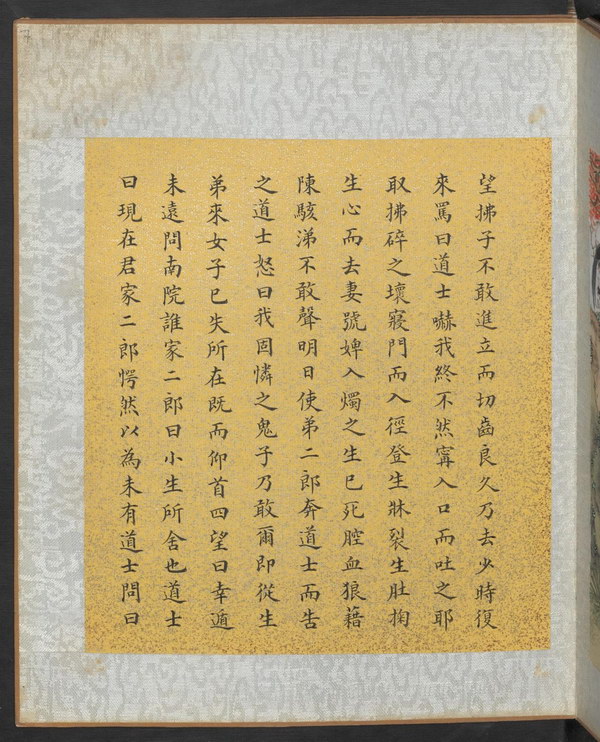 望拂子不敢進立而切齒良久乃去少時復
來罵曰道士嚇我終不然寗入口而吐之耶
取拂碎之壞寢門而入徑登生牀裂生肚掬
生心而去妻號婢入燭之生已死腔血狼籍
陳駭涕不敢聲明日使弟二郎奔道士而告
之道士怒曰我固憐之鬼子乃敢爾即從生
弟來女子已失所在既而仰首四望曰幸遁
未遠問南院誰家二郎曰小生所舍也道士
曰現在君家二郎愕然以為未有道士問曰